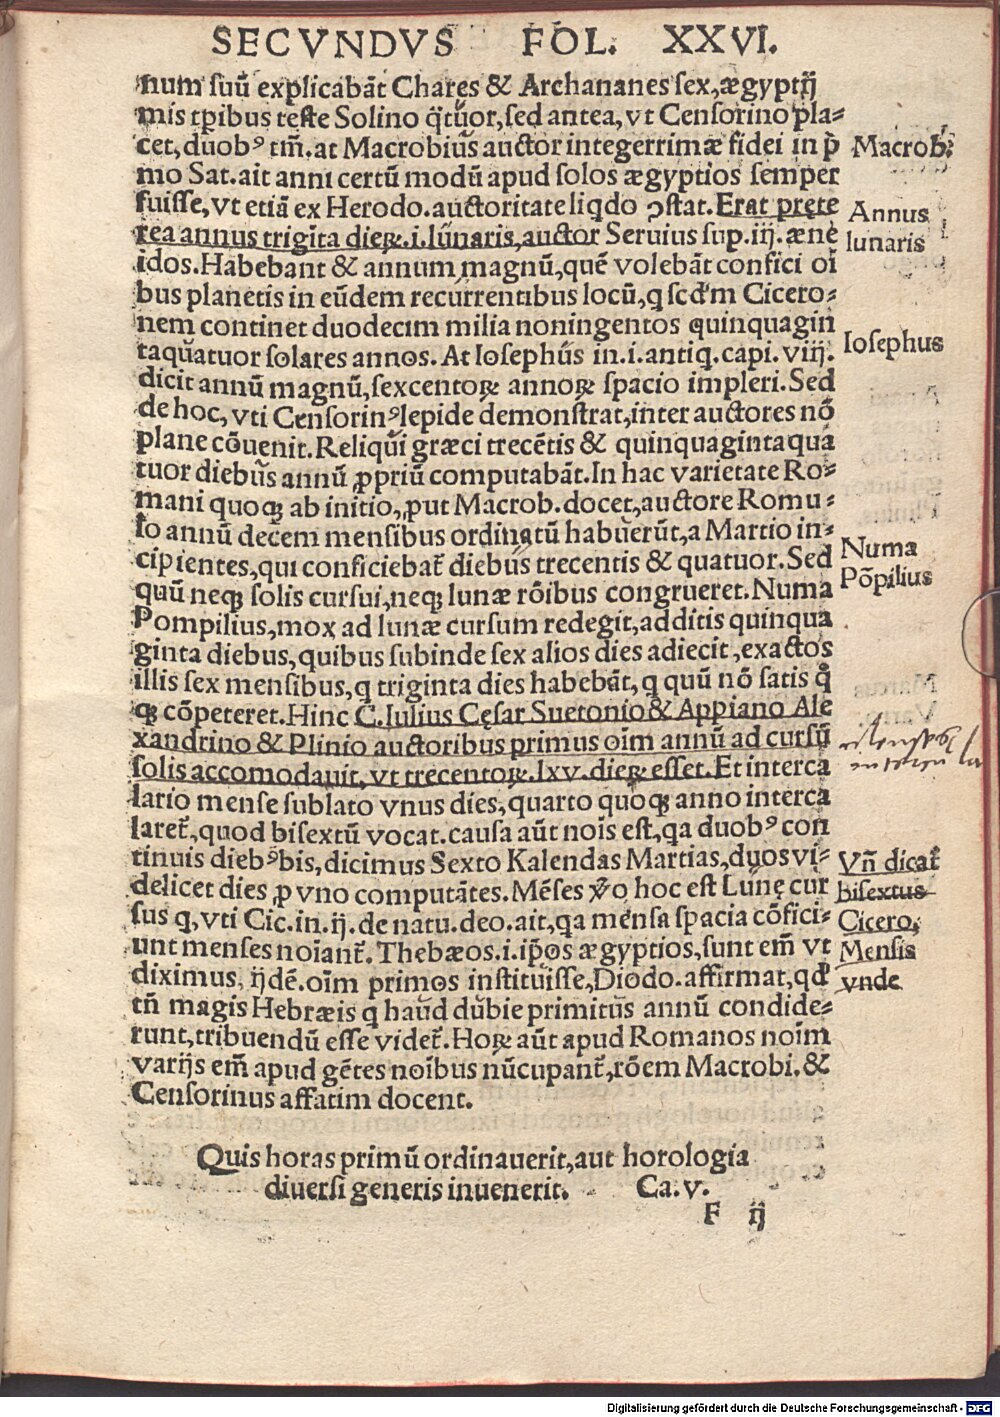 SECVNDVS FOL. XXVI.
num suũ explicabãt Chares & Archananes sex, ægyptij
mis tꝑibus teste Solino q̃tuor, sed antea, vt Censorino pla⸗
cet, duobꝰ tm̃. at Macrobius auctor integerrimæ fidei in p̃
Macrob:
mo Sat. ait anni certũ modũ apud solos ægyptios semper
fuisse, vt etiã ex Herodo. auctoritate liq̇do ↄstat. Erat pręte
Annus
rea annus triginta dieꝝ .i. lũnaris, auctor Seruius sup. iij. æne
lunaris
idos. Habebant & annum magnũ, quẽ volebãt confici oĩ
bus planetis in eũdem recurrentibus locũ, q scd'm Cicero⸗
nem continet duodecim milia noningentos quinquagin
taquatuor solares annos. At Iosephus in .i. antiq. capi. viij.
Iosephus
dicit annũ magnũ, sexcentoꝝ annoꝝ spacio impleri. Sed
de hoc, vti Censorinꝰ lepide demonstrat, inter auctores nõ
plane cõuenit. Reliqui græci trecẽtis & quinquagintaqua
tuor diebus annũ ꝓpriũ computabãt. In hac varietate Ro⸗
mani quoqꝫ ab initio, ꝓut Macrob. docet, auctore Romu⸗
lo annũ decem mensibus ordinatũ habuerũt, a Martio in⸗
cipientes, qui conficiebat̃ diebus trecentis & quatuor. Sed
Numa
quũ neqꝫ solis cursui, neqꝫ lunæ rõibus congrueret. Numa
Põpilius
Pompilius, mox ad lunæ cursum redegit, additis quinqua
ginta diebus, quibus subinde sex alios dies adiecit, exactos
illis sex mensibus, q triginta dies habebãt, q quũ nõ satis q̊
qꝫ cõpeteret. Hinc C. Iulius Cęsar Suetonio & Appiano Ale
xandrino & Plinio auctoribus primus oĩm annũ ad cursũ
solis accomodauit, vt trecentoꝝ .lxv. dieꝝ esset. Et interca
lario mense sublato vnus dies, quarto quoqꝫ anno interca
laret̃, quod bisextũ vocat. causa aũt nois est, qa duobꝰ con
tinuis diebꝰ bis, dicimus Sexto Kalendas Martias, duos vi⸗
Vñ dicat̃
delicet dies ꝓ vno computãtes. Mẽses ṽo hoc est Lunę cur
bisextus
sus q, vti Cic. in .ij. de natu. deo. ait, qa mensa spacia cõfici⸗
Cicero.
unt menses noĩant̃. Thebæos .i. ip̃os ægyptios, sunt em̃ vt
Mensis
diximus, ijdẽ. oĩm primos instituisse, Diodo. affirmat, qd
vnde
tñ magis Hebræis q haud dubie primitus annũ condide⸗
runt, tribuendũ esse videt̃. Horꝝ aũt apud Romanos noĩm
varijs em̃ apud gẽtes noĩbus nũcupant̃, rõem Macrobi. &
Censorinus affatim docent.
Quis horas primũ ordinauerit, aut horologia
diuersi generis inuenerit. Ca. v.
F ij
Digitalisierung gefördert durch die Deutsche Forschungsgemeinschaft - DFG